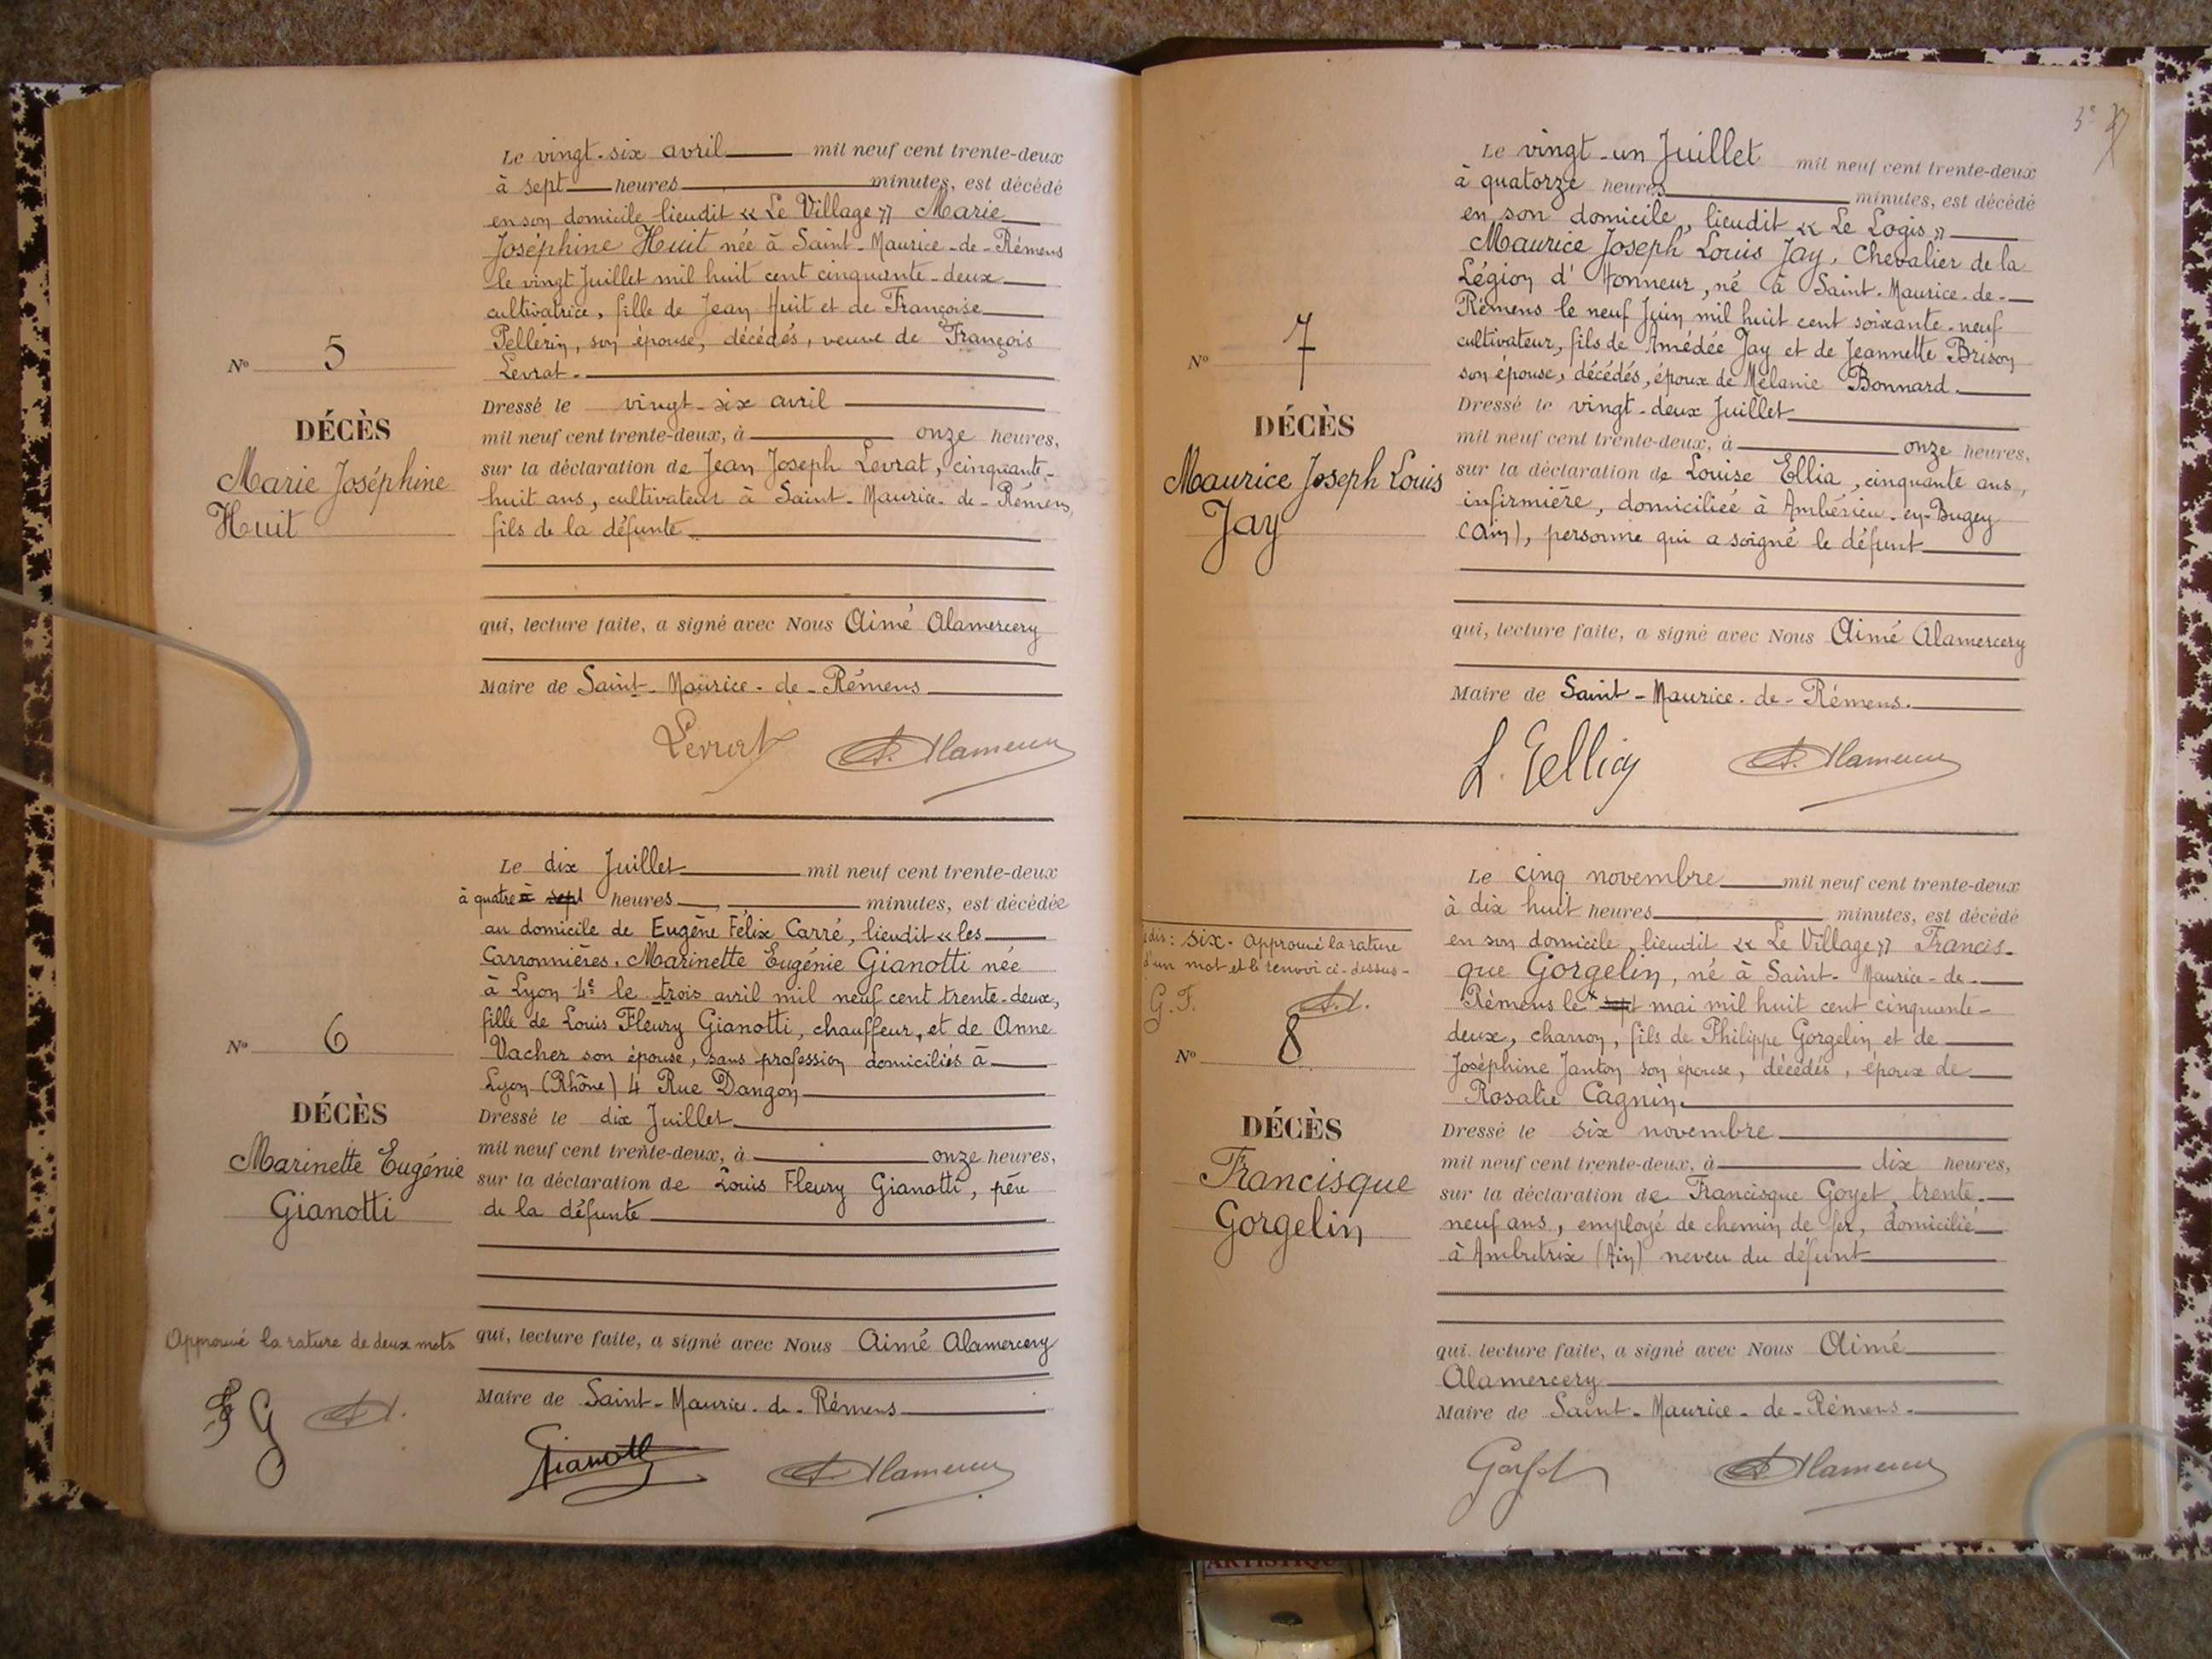 Le vingt-six avril mil neuf cent trente-deux
à sept heures minutes, est décédé
en son domicile lieudit « Le Village » Marie
Joséphine Huit née à Saint-Maurice-de-Rémens
le vingt Juillet mil huit cent cinquante-deux
cultivatrice, fille de Jean Huit et de Françoise
Pellerin, son épouse, décédés, veuve de François
Levrat.
N° 5
DÉCÈS
Marie Joséphine
Huit
Dressé le vingt-six avril
mil neuf cent trente-deux, à onze heures,
sur la déclaration de Jean Joseph Levrat, cinquante-
huit ans, cultivateur à Saint-Maurice-de-Rémens,
fils de la défunte
qui, lecture faite, a signé avec Nous Aimé Alamercery
Maire de Saint-Maurice-de-Rémens
Levrat A. Alamercery
Le dix Juillet mil neuf cent trente-deux
à quatre à sept heures, minutes, est décédée
au domicile de Eugène Félix Carré, lieudit « les
Carronnières. Marinette Eugénie Gianotti née
à Lyon 4e le trois avril mil neuf cent trente-deux,
fille de Louis Fleury Gianotti, chauffeur, et de Anne
Vacher son épouse, sans profession domiciliés à
Lyon (Rhône) 4 Rue Dangon
N° 6
DÉCÈS
Marinette Eugénie
Gianotti
Dressé le dix Juillet
mil neuf cent trente-deux, à onze heures,
sur la déclaration de Louis Fleury Gianotti, père
de la défunte
Approuvé la rature de deux mots
qui, lecture faite, a signé avec Nous Aimé Alamercery
Maire de Saint-Maurice-de-Rémens
Gianotti A. Alamercery
Le vingt-un Juillet mil neuf cent trente-deux
à quatorze heures minutes, est décédé
en son domicile, lieudit « Le Logis »
Maurice Joseph Louis Jay, Chevalier de la
Légion d'Honneur, né à Saint-Maurice-de-
Rémens le neuf Juin mil huit cent soixante-neuf
cultivateur, fils de Amédée Jay et de Jeannette Brison
son épouse, décédés, époux de Mélanie Bonnard.
N° 7
DÉCÈS
Maurice Joseph Louis
Jay
Dressé le vingt-deux Juillet
mil neuf cent trente-deux, à onze heures,
sur la déclaration de Louise Ellia, cinquante ans,
infirmière, domiciliée à Ambérieu-en-Bugey
(Ain), personne qui a soigné le défunt
qui, lecture faite, a signé avec Nous Aimé Alamercery
Maire de Saint-Maurice-de-Rémens.
A. Alamercery
Le cinq novembre mil neuf cent trente-deux
à dix huit heures minutes, est décédé
en son domicile, lieudit « Le Village » Francis-
que Gorgelin, né à Saint-Maurice-de-
Rémens le x sept mai mil huit cent cinquante-
deux, charron, fils de Philippe Gorgelin et de
Joséphine Janton son épouse, décédés, époux de
Rosalie Cagnin.
six - Approuvé la rature
d'un mot et le renvoi ci-dessus-
G. F. A. A.
N° 8
DÉCÈS
Francisque
Gorgelin
Dressé le six novembre
mil neuf cent trente-deux, à dix heures,
sur la déclaration de Francisque Goyet, trente-
neuf ans, employé de chemin de fer, domicilié
à Ambutrix (Ain) neveu du défunt
qui, lecture faite, a signé avec Nous Aimé
Alamercery
Maire de Saint-Maurice-de-Rémens.
Goyet A. Alamercery
ARTISTIQUE